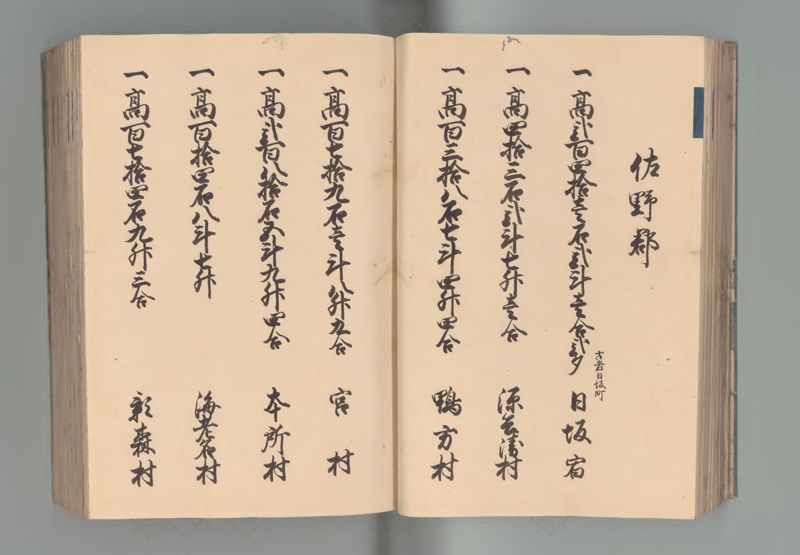 佐野郡
一高弐百四拾壱石弐斗壱合弐夕 日坂宿
古者日坂町
一高四拾三石弐斗七升壱合 村
一高百三拾八石七斗四升四合 鴨方村
一高百七拾九石壱斗八升九合 宮村
一高弐百八拾石五斗九升四合 本所村
一高百拾四石八斗七升 海老名村
一高百七拾四石九升三合 影森村